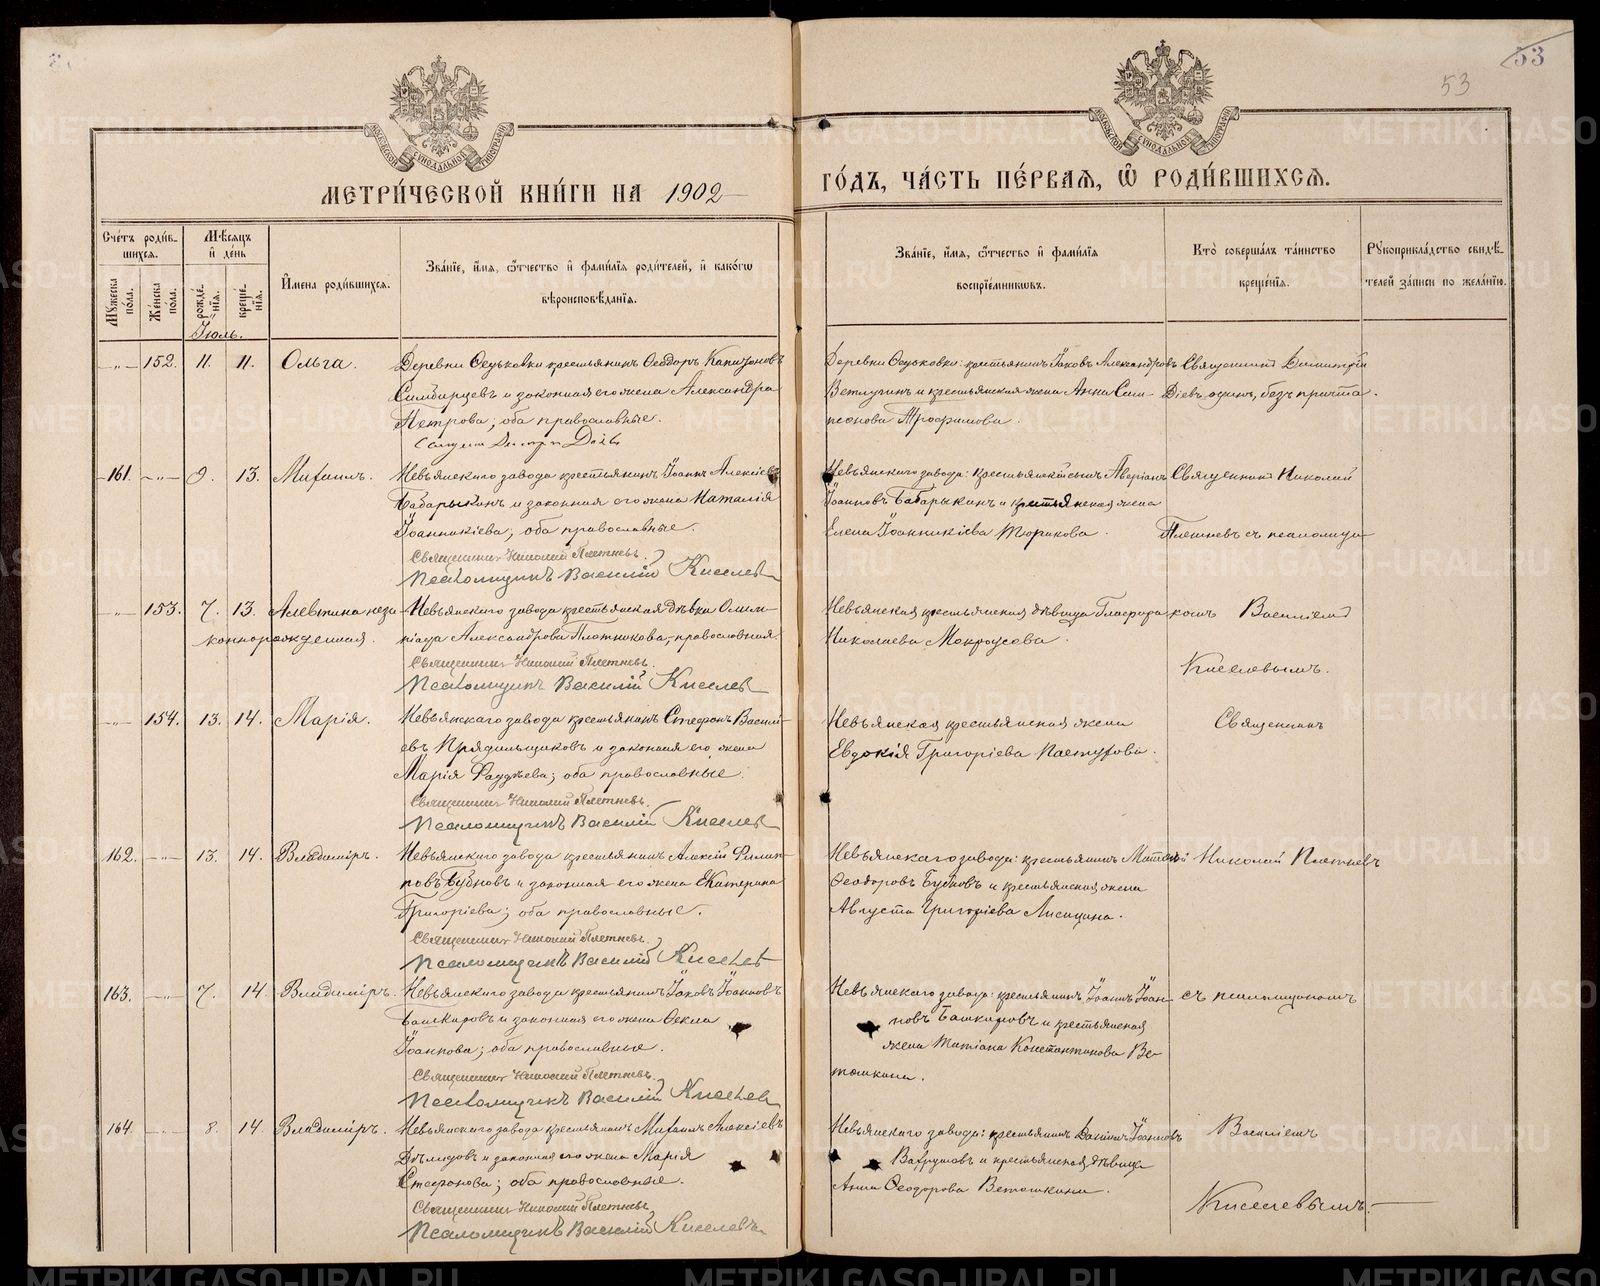 53
53
МЕТРИ́ЧЕСКОЙ КНИ́ГИ НА 1902
ГО́ДЪ, ЧА́СТЬ ПЕ́РВАЯ, Ѿ РОДИ́ВШИХСЯ.
Сче́тъ роди́в-
шихся.
Мѣ́сяцъ
и҆ де́нь
Му́жеска по́ла.
Же́нска по́ла.
рожде́-нїѧ.
креще́-нїѧ.
И҆мена роди́вшихся.
Зва́нїе, и҆́мя, ѻ҆́тчество и҆ фами́лїя роди́телей, и҆ како́гѡ
вѣроисповѣ́данїя.
Зва́нїе, и҆́мя, ѻ҆́тчество и҆ фами́лїя
воспрїе́мникѡвъ.
Кто̀ соверша́лъ та́инство
креще́нїя.
Рꙋкоприкла́дство свидѣ́-
телей за́писи по жела́нїю.
Іюль.
152. 11. 11. Ольга.
Деревни Осуьковки крестьянинъ Ѳеодоръ Капитоновъ
Симбирцевъ и законная его жена Александра
Петрова; оба православные.
Деревни Осуьковки: крестьянинъ Іаковъ Александровъ
Ветлугинъ и крестьянская жена Анна Сам-
псонова Трофимова.
Священникъ Димитрій
Діевъ одинъ, безъ причта.
161. 9. 13. Михаилъ.
Невьянскаго завода крестьянинъ Іоаннъ Алексіевъ
Бабарыкинъ и законная его жена Наталія
Іоанникіева; оба православные.
Священникъ Николай Плетневъ.
Псаломщикъ Василій Киселевъ
Невьянскаго завода: крестьянскій сынъ Аверіанъ
Іоанновъ Бабарыкинъ и крестьянская жена
Елена Іоанникіева Торикова.
Священникъ Николай
Плетневъ съ псаломщи-
153. 7. 13. Алевтина неза-
коннорожденная.
Невьянскаго завода крестьянская дѣвка Олим-
піада Александрова Плотникова, православная
Священникъ Николай Плетневъ.
Псаломщикъ Василій Киселев
Невьянская крестьянская дѣвица Глафира
Николаева Мокроусова.
комъ Василіемъ
Киселевымъ.
154. 13. 14. Марія.
Невьянскаго завода крестьянинъ Стефанъ Васил-
евъ Прядильщиковъ и законная его жена
Марія Фаддѣева; оба православные.
Священникъ Николай Плетневъ.
Псаломщикъ Василій Киселев
Невьянская крестьянская жена
Евдокія Григоріева Пастухова.
Священникъ
162. 13. 14. Владиміръ.
Невьянскаго завода крестьянинъ Алексій Филип-
повъ Бубновъ и законная его жена Екатерина
Григоріева; оба православные.
Священникъ Николай Плетневъ.
Псаломщикъ Василій Киселев
Невьянскаго завода: крестьянинъ Матвей
Ѳеодоровъ Бубновъ и крестьянская жена
Августа Григоріева Лисицина.
Николай Плетневъ
163. 7. 14. Владиміръ.
Невьянскаго завода крестьянинъ Іаковъ Іоанновъ
Башкировъ и законная его жена Ѳекла
Іоаннова; оба православные.
Священникъ Николай Плетневъ.
Псаломщикъ Василій Киселев
Невьянскаго завода: крестьянинъ Іоаннъ Іоан-
новъ Башкировъ и крестьянская
жена Татіана Константинова Ве-
тошкина.
съ псаломщикомъ
164. 8. 14. Владиміръ.
Невьянскаго завода крестьянинъ Михаилъ Алексіевъ
Дѣмидовъ и законная его жена Марія
Стефанова; оба православные.
Священникъ Николай Плетневъ
Псаломщикъ Василій Киселевъ
Невьянскаго завода: крестьянинъ Даніилъ Іоанновъ
Вахрушовъ и крестьянская дѣвица
Анна Ѳеодорова Ветошкина.
Василіемъ
Киселевымъ.
METRIKI.GASO-URAL.RU